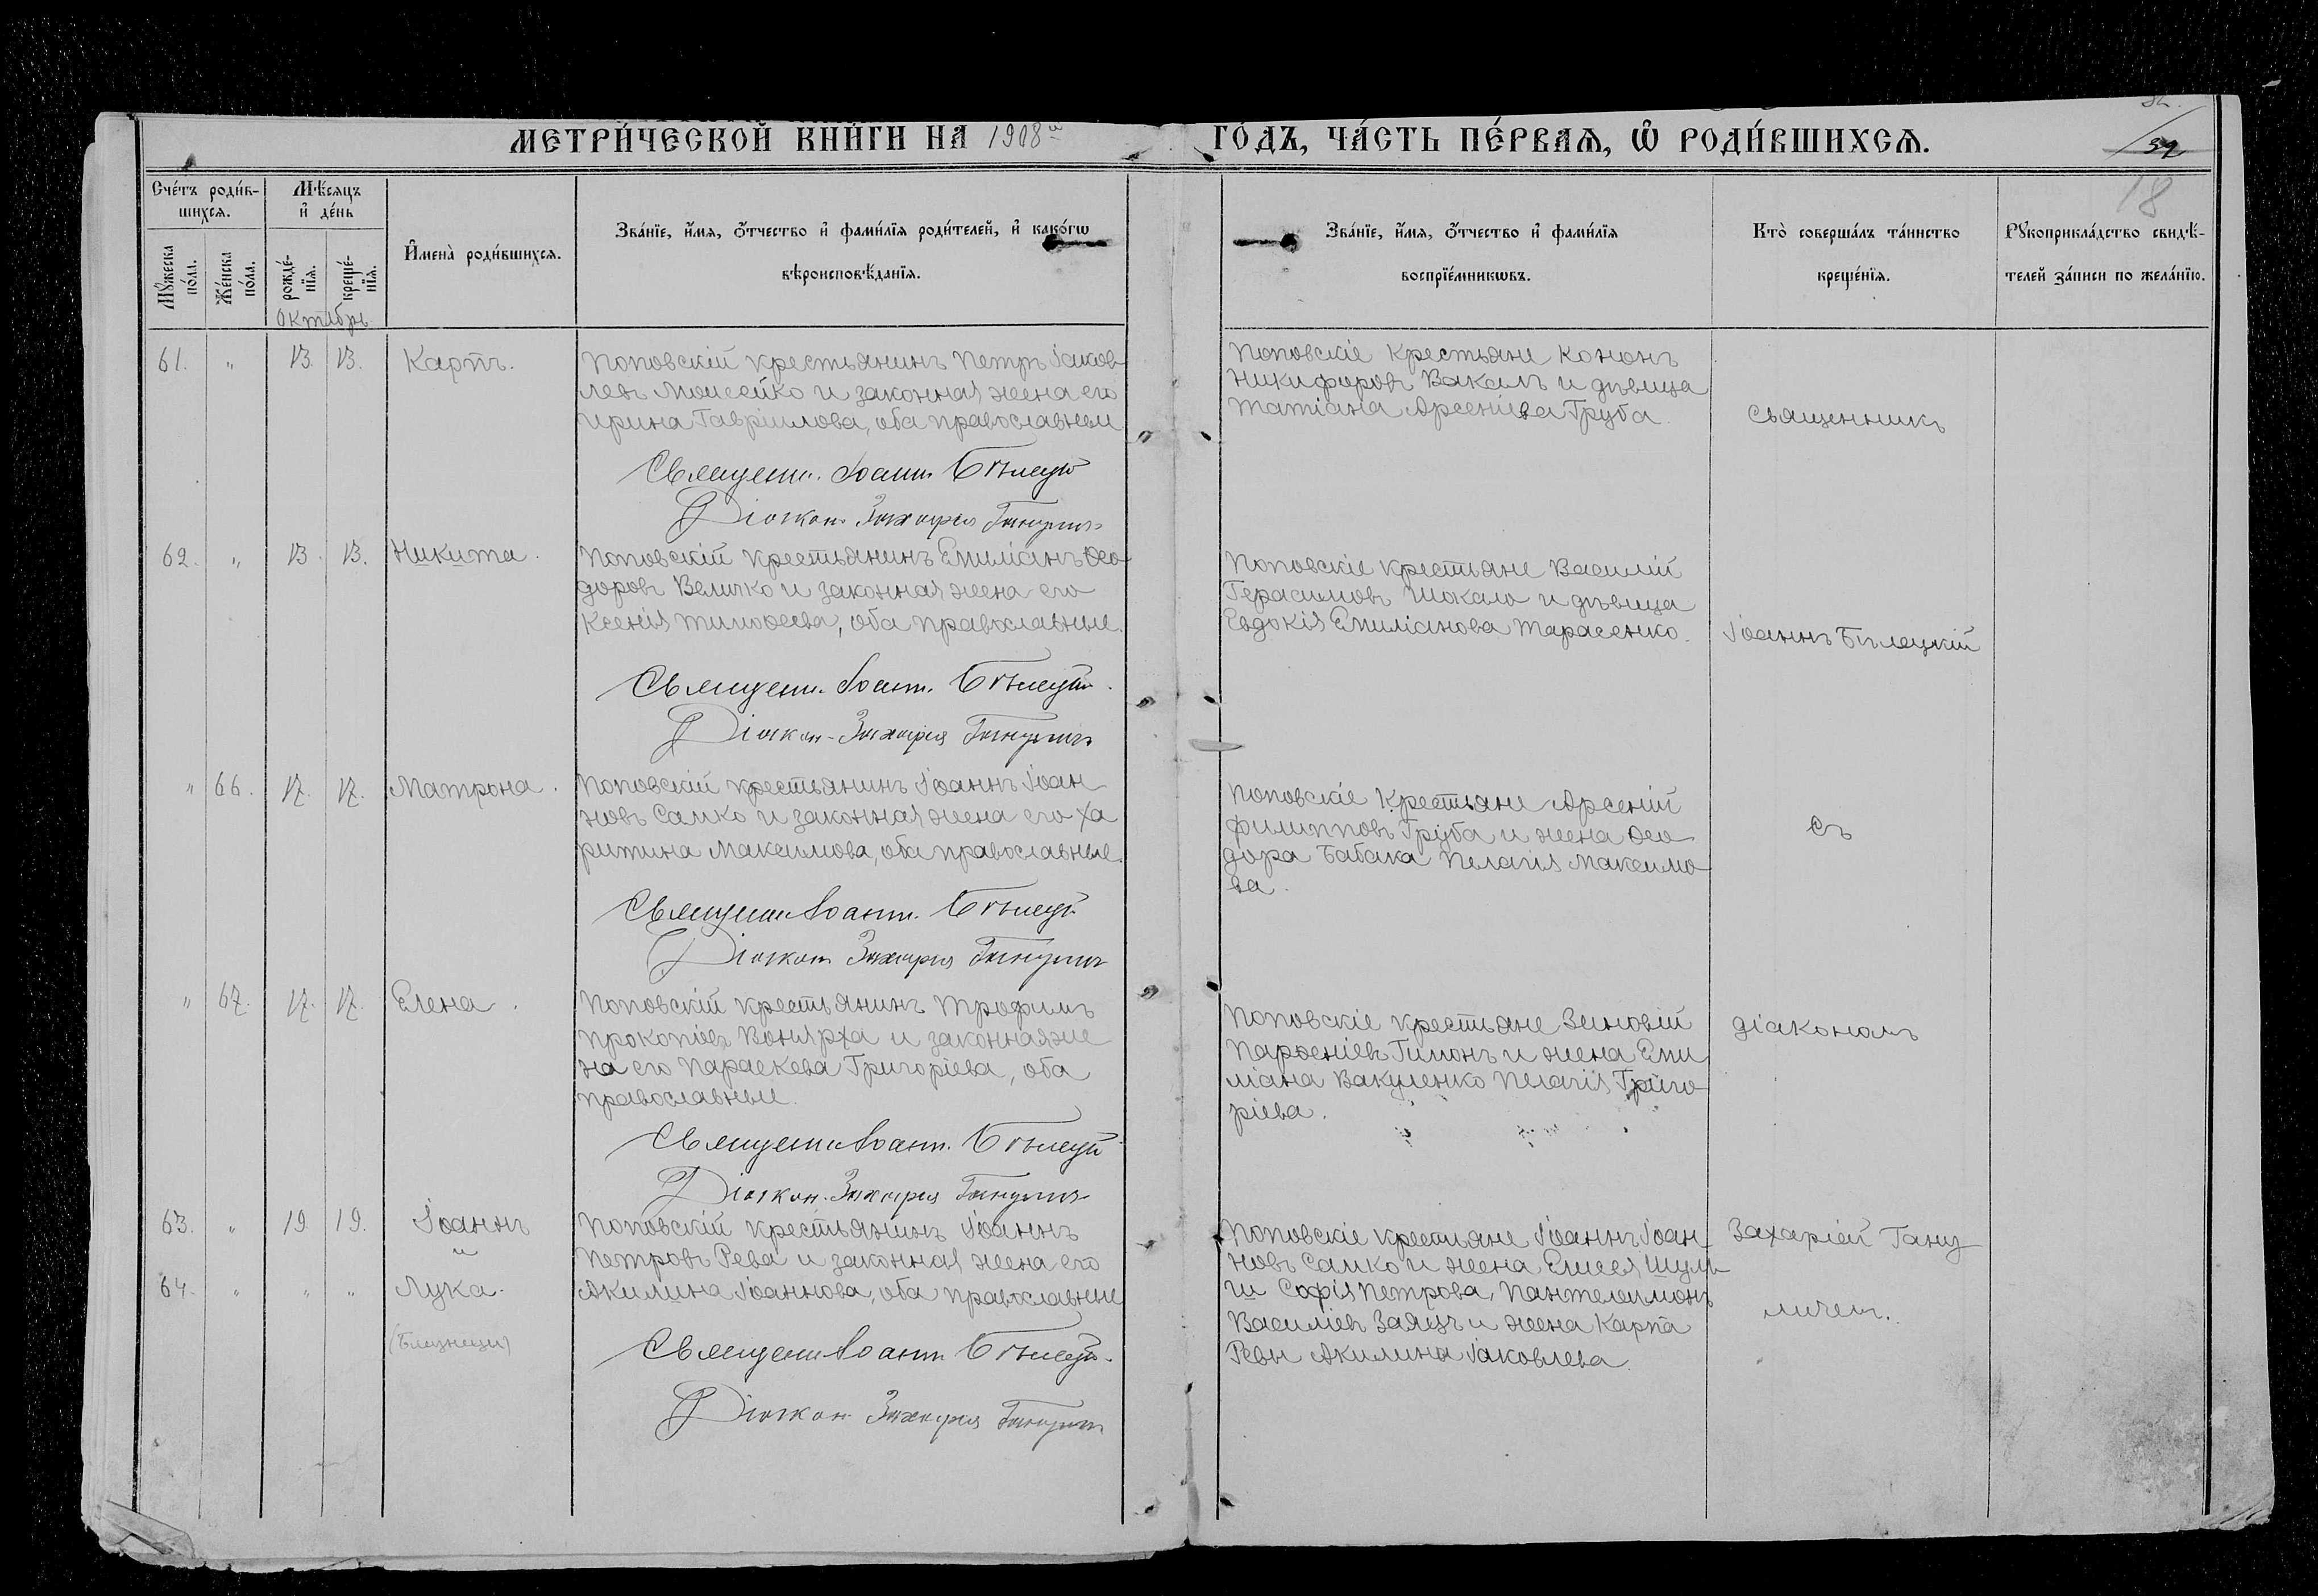 МЕТРИ́ЧЕСКОЙ КНИ́ГИ НА 1908й ГО́ДЪ, ЧА́СТЬ ПЕ́РВАѦ, Ѡ РОДИ́ВШИХСѦ.
18
Сче́тъ роди́в-
шихся.
Мѣ́сяцъ
и де́нь
Мꙋ́жеска по́ла.
Же́нска по́ла.
рожде́-
нїя.
креще́-
нїя.
Имена̀ роди́вшихся.
Зва́нїе, и́мя, о́тчество и фами́лїя роди́телей, и како́гѡ
вѣроисповѣ́данїя.
Зва́нїе, и́мя, о́тчество и фами́лїя
воспрїе́мникѡвъ.
Кто̀ соверша́лъ та́инство
креще́нїя.
Рꙋкоприкла́дство свидѣ́-
телей за́писи по жела́нїю.
Октябрь
61. " 13. 13. Карпъ.
Поповскій крестьянинъ Петръ Іаков-
левъ Моисейко и законная жена его
Ирина Гавріилова, оба православные
Священн. Іоанн. Бѣлецкій
Діакон Захарія Ганулич
Поповскіе крестьяне Кононъ
Никифоровъ Вакалъ и дѣвица
Татіана Арсеніева Груба
Священникъ
62. " 13. 13. Никита.
Поповскій крестьянинъ Емиліанъ Ѳео-
доровъ Величко и законная жена его
Ксенія Тимоѳеева, оба православные.
Священн. Іоанн. Бѣлецкій
Діакон Захарія Ганулич
Поповскіе крестьяне Василій
Герасимовъ Шокало и дѣвица
Евдокія Емиліанова Тарасенко.
Іоаннъ Бѣлецкій
" 66. 17. 17. Матрона.
Поповскій крестьянинъ Іоаннъ Іоан-
новъ Самко и законная жена его Ха
ритина Максимова, оба православные.
Священн Іоанн. Бѣлецкій
Діакон Захарія Ганулич
Поповскіе крестьяне Арсеній
Филипповъ Груба и жена Ѳео-
дора Бабака Пелагія Максимо
ва.
съ
" 67. 17. 17. Елена.
Поповскій крестьянинъ Трофимъ
Прокопіевъ Вонярха и законная же
на его Параскева Григоріева, оба
православные.
Священн Іоанн. Бѣлецкій
Діакон. Захарія Ганулич
Поповскіе крестьяне Зиновій
Парѳеніевъ Гимонъ и жена Еми
ліана Вакуленко Пелагія Григо-
ріева.
діакономъ
63. " 19 19. Іоаннъ
и
64. " " " Лука.
(Близнецы)
Поповскій крестьянинъ Іоаннъ
Петровъ Рева и законная жена его
Акилина Іоаннова, оба православные
Священн Іоанн Бѣлецкій.
Діакон Захарія Ганулич
Поповскіе крестьяне Іоаннъ Іоан-
новъ Самко и жена Елисея Шуль-
ги Софія Петрова, Пантелеимонъ
Василіевъ Заяцъ и жена Карпа
Ревы Акилина Іаковлева.
Захаріей Гану
личем.